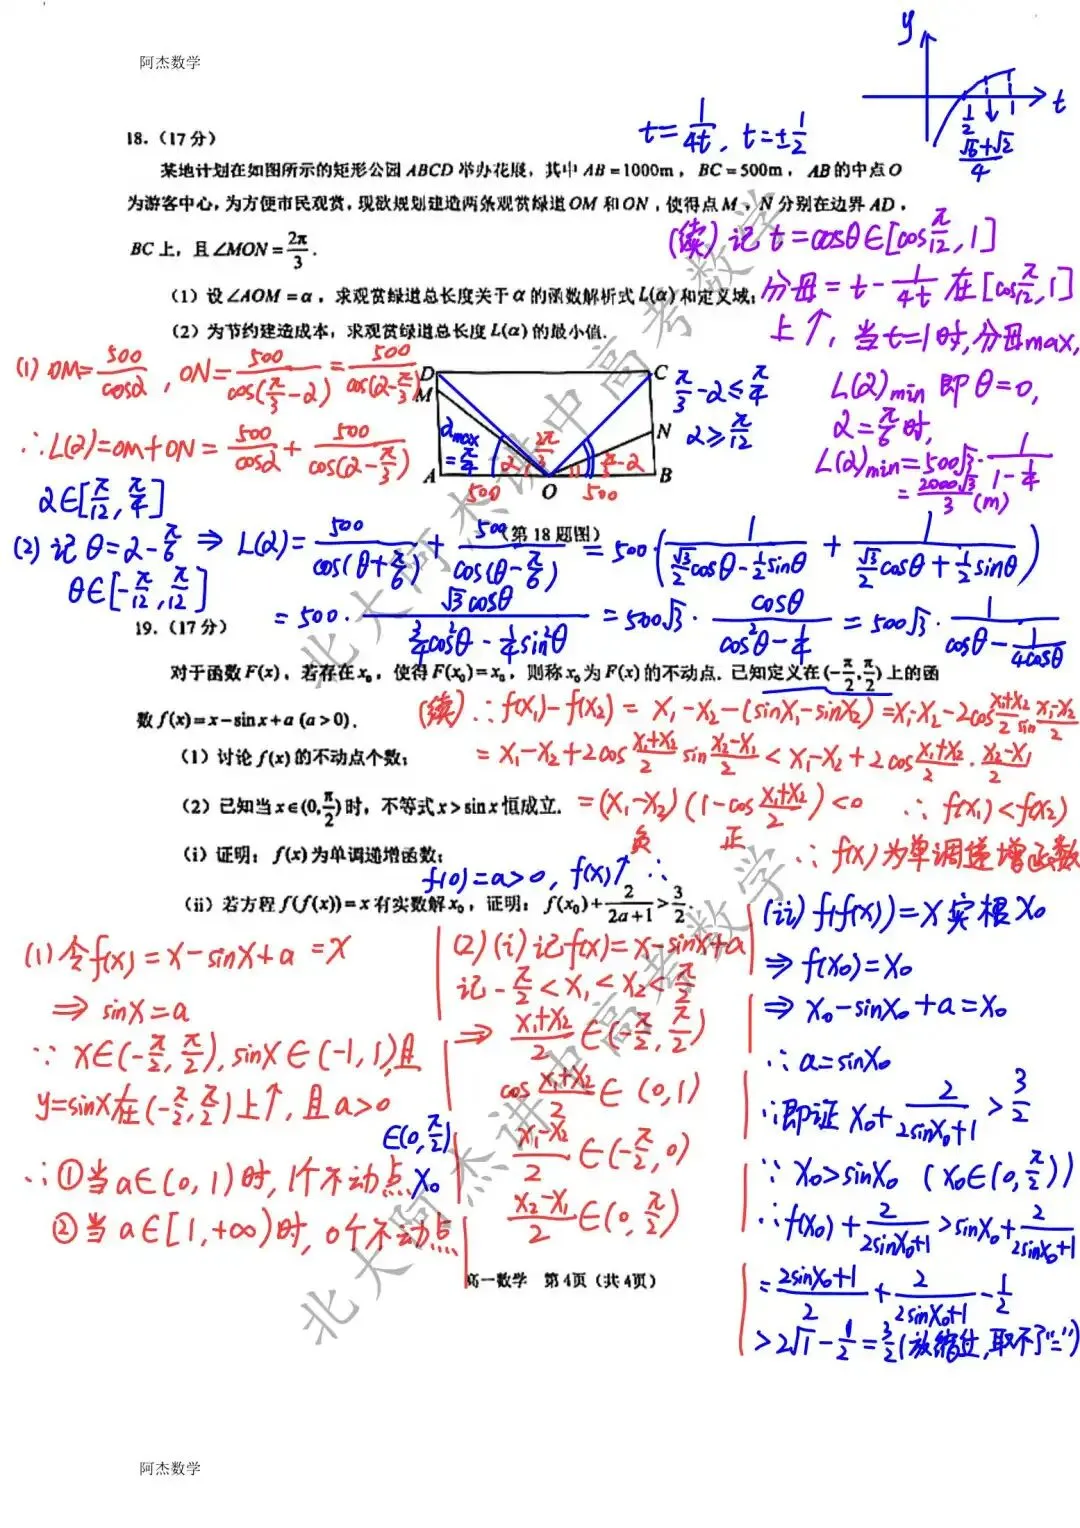 阿杰数学
18.（17分）
某地计划在如图所示的矩形公园 ABCD 举办花展，其中 AB=1000m，BC=500m，AB的中点O
为游客中心，为方便市民观赏，现欲规划建造两条观赏绿道 OM 和 ON，使得点 M、N 分别在边界 AD，
BC 上，且 ∠MON = 2π/3.
（1）设 ∠AOM = α，求观赏绿道总长度关于 α 的函数解析式 L(α) 和定义域；
（2）为节约建造成本，求观赏绿道总长度 L(α) 的最小值.
t = 1/4t , t = ±1/2
y
t
1/2
1
(√6+√2)/4
(续) 记 t = cosθ ∈ [cos π/12, 1]
分母 = t - 1/4t 在 [cos π/12, 1]
上↑, 当t=1时, 分母max,
L(α)min 即 θ=0,
α = π/6 时,
L(α)min = 500√3 · 1/(1 - 1/4)
= 2000√3/3 (m)
(1) OM = 500/cosα , ON = 500/cos(π/3 - α) = 500/cos(α - π/3)
∴ L(α) = OM + ON = 500/cosα + 500/cos(α - π/3)
α ∈ [π/12, π/4]
D
C
M
N
A
O
B
αmax = π/4
α
2π/3
π/3 - α
500
500
π/3 - α ≤ π/4
α ≥ π/12
（第 18 题图）
(2) 记 θ = α - π/6 ⇒ L(α) = 500/cos(θ + π/6) + 500/cos(θ - π/6) = 500 ( 1/(√3/2 cosθ - 1/2 sinθ) + 1/(√3/2 cosθ + 1/2 sinθ) )
θ ∈ [-π/12, π/12]
= 500 · √3cosθ/(3/4 cos²θ - 1/4 sin²θ) = 500√3 · cosθ/(cos²θ - 1/4) = 500√3 · 1/(cosθ - 1/4cosθ)
19.（17分）
对于函数 F(x)，若存在 x₀，使得 F(x₀)=x₀，则称 x₀ 为 F(x) 的不动点. 已知定义在 (-π/2, π/2) 上的函
数 f(x)=x-sinx+a (a>0).
（1）讨论 f(x) 的不动点个数；
（2）已知当 x∈(0, π/2) 时，不等式 x>sinx 恒成立.
（i）证明：f(x) 为单调递增函数；
（ii）若方程 f(f(x))=x 有实数解 x₀，证明：f(x₀) + 2/(2a+1) > 3/2.
(续) ∴ f(x₁)-f(x₂) = x₁-x₂-(sinx₁-sinx₂) = x₁-x₂-2cos (x₁+x₂)/2 sin (x₁-x₂)/2
= x₁-x₂+2cos (x₁+x₂)/2 sin (x₂-x₁)/2 < x₁-x₂+2cos (x₁+x₂)/2 · (x₂-x₁)/2
= (x₁-x₂)(1-cos (x₁+x₂)/2) < 0 ∴ f(x₁) < f(x₂)
负 正
∴ f(x) 为单调递增函数
f(0)=a>0, f(x)↑ ∴
(1) 令 f(x) = x-sinx+a = x
⇒ sinx = a
∵ x∈(-π/2, π/2), sinx∈(-1, 1), 且
y=sinx 在 (-π/2, π/2) 上↑, 且 a>0
∴ ① 当 a∈(0, 1) 时, 1个不动点 x₀ ∈(0, π/2)
② 当 a∈[1, +∞) 时, 0个不动点
(2) (i) 记 f(x) = x-sinx+a
记 -π/2 < x₁ < x₂ < π/2
⇒ (x₁+x₂)/2 ∈ (-π/2, π/2)
cos (x₁+x₂)/2 ∈ (0, 1)
(x₁-x₂)/2 ∈ (-π/2, 0)
(x₂-x₁)/2 ∈ (0, π/2)
(ii) f(f(x)) = x 实根 x₀
⇒ f(x₀) = x₀
⇒ x₀-sinx₀+a = x₀
∴ a = sinx₀
∴ 即证 x₀ + 2/(2sinx₀+1) > 3/2
∵ x₀ > sinx₀ (x₀∈(0, π/2))
∴ f(x₀) + 2/(2sinx₀+1) > sinx₀ + 2/(2sinx₀+1)
= (2sinx₀+1)/2 + 2/(2sinx₀+1) - 1/2
> 2√1 - 1/2 = 3/2 (放缩过, 取不了"=")
高一数学 第4页（共4页）
北大阿杰讲中高考数学
北大阿杰讲中高考数学
阿杰数学